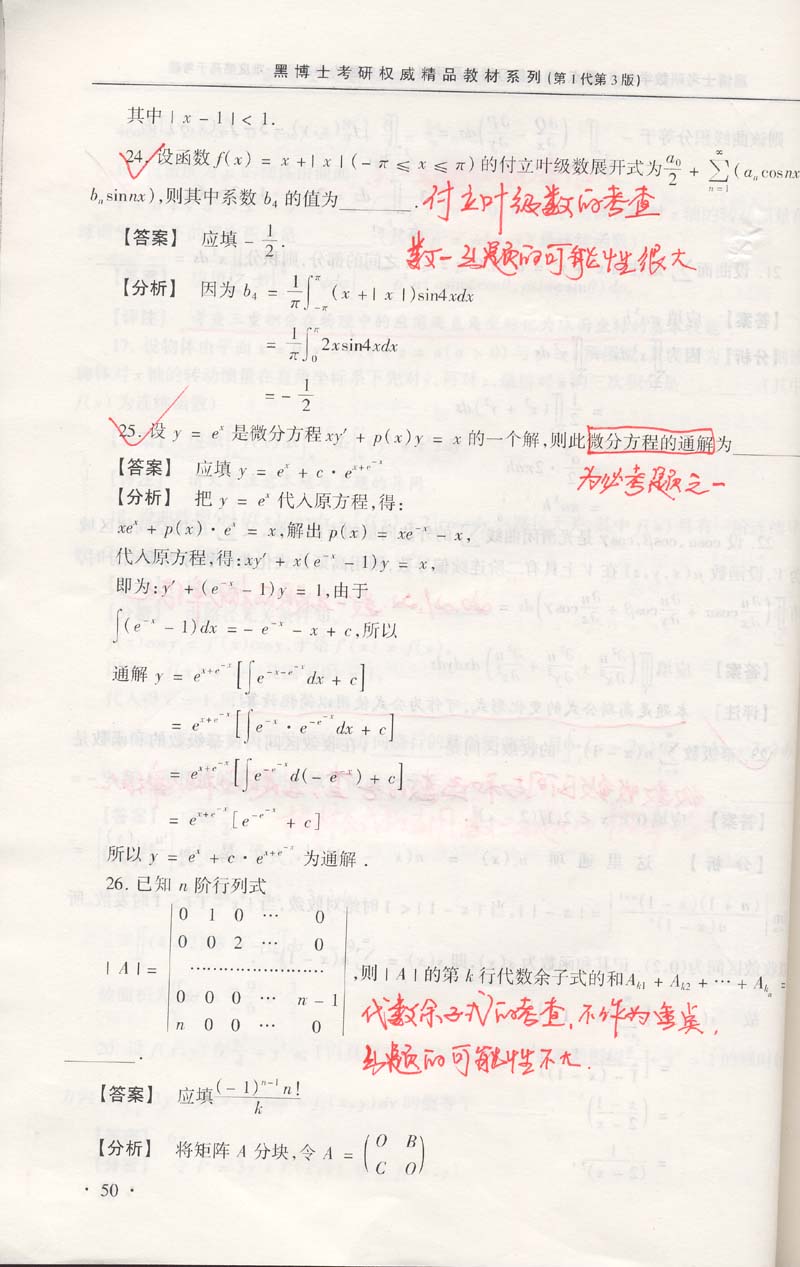 黑博士考研权威精品教材系列(第1代第3版)
其中 | x - 1 | < 1.
24. 设函数 f(x) = x + | x | ( - π ⩽ x ⩽ π) 的付立叶级数展开式为 a₀/2 + ∑_{n=1}^{∞} (aₙcosnx
bₙsinnx), 则其中系数 b₄ 的值为______.
付立叶级数的考查
数一出题的可能性很大
【答案】 应填 - 1/2.
【分析】 因为 b₄ = 1/π ∫_{-π}^{π} (x + | x |)sin4xdx
= 1/π ∫_0^π 2xsin4xdx
= - 1/2
25. 设 y = e^x 是微分方程 xy′ + p(x)y = x 的一个解, 则此微分方程的通解为______
为必考题之一
【答案】 应填 y = e^x + c · e^{x+e^{-x}}
【分析】 把 y = e^x 代入原方程, 得:
xe^x + p(x) · e^x = x, 解出 p(x) = xe^{-x} - x,
代入原方程, 得: xy′ + x(e^{-x} - 1)y = x,
即为: y′ + (e^{-x} - 1)y = 1, 由于
∫(e^{-x} - 1)dx = - e^{-x} - x + c, 所以
通解 y = e^{x+e^{-x}} [∫e^{-x-e^{-x}} dx + c]
= e^{x+e^{-x}} [∫e^{-x} · e^{-e^{-x}} dx + c]
= e^{x+e^{-x}} [∫e^{-e^{-x}} d(- e^{-x}) + c]
= e^{x+e^{-x}} [e^{-e^{-x}} + c]
所以 y = e^x + c · e^{x+e^{-x}} 为通解 .
26. 已知 n 阶行列式
0 1 0 ⋯ 0
0 0 2 ⋯ 0
| A | = ⋯⋯⋯⋯⋯⋯⋯ , 则 | A | 的第 k 行代数余子式的和 A_{k1} + A_{k2} + ⋯ + A_{k_n} =
0 0 0 ⋯ n - 1
n 0 0 ⋯ 0
代数余子式的考查, 不作为重点,
出题的可能性不大.
______.
【答案】 应填 (- 1)^{n-1} n! / k
【分析】 将矩阵 A 分块, 令 A = (O B
C O)
· 50 ·